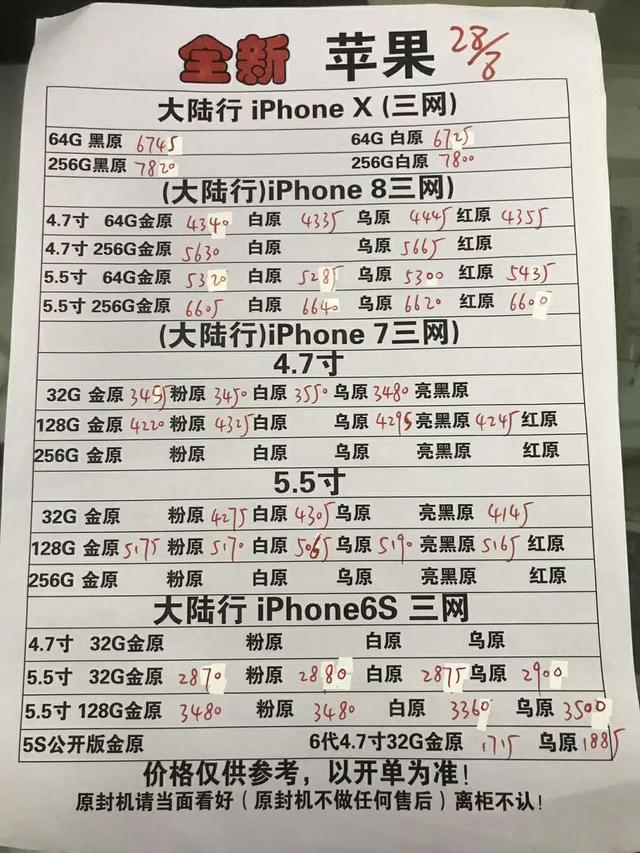 全新 苹果 28/8
大陆行 iPhone X (三网)
64G 黑原 6745 64G 白原 6725
256G黑原 7820 256G白原 7800
(大陆行)iPhone 8三网)
4.7寸 64G金原 4340 白原 4335 乌原 4445 红原 4355
4.7寸 256G金原 5630 白原 乌原 5665 红原
5.5寸 64G金原 5320 白原 5285 乌原 5300 红原 5435
5.5寸 256G金原 6605 白原 6640 乌原 6620 红原 6600
(大陆行)iPhone 7三网)
4.7寸
32G 金原 3455 粉原 3450 白原 3550 乌原 3480 亮黑原
128G 金原 4220 粉原 4325 白原 乌原 4295 亮黑原 4245 红原
256G 金原 粉原 白原 乌原 亮黑原 红原
5.5寸
32G 金原 粉原 4275 白原 4305 乌原 亮黑原 4145
128G 金原 5175 粉原 5170 白原 5065 乌原 5190 亮黑原 5165 红原
256G 金原 粉原 白原 乌原 亮黑原 红原
大陆行 iPhone6S 三网
4.7寸 32G金原 粉原 白原 乌原
5.5寸 32G金原 2870 粉原 2880 白原 2875 乌原 2900
5.5寸 128G金原 3480 粉原 3480 白原 3360 乌原 3500
5S公开版金原 6代4.7寸32G金原 1715 乌原 1885
价格仅供参考，以开单为准！
原封机请当面看好（原封机不做任何售后）离柜不认！